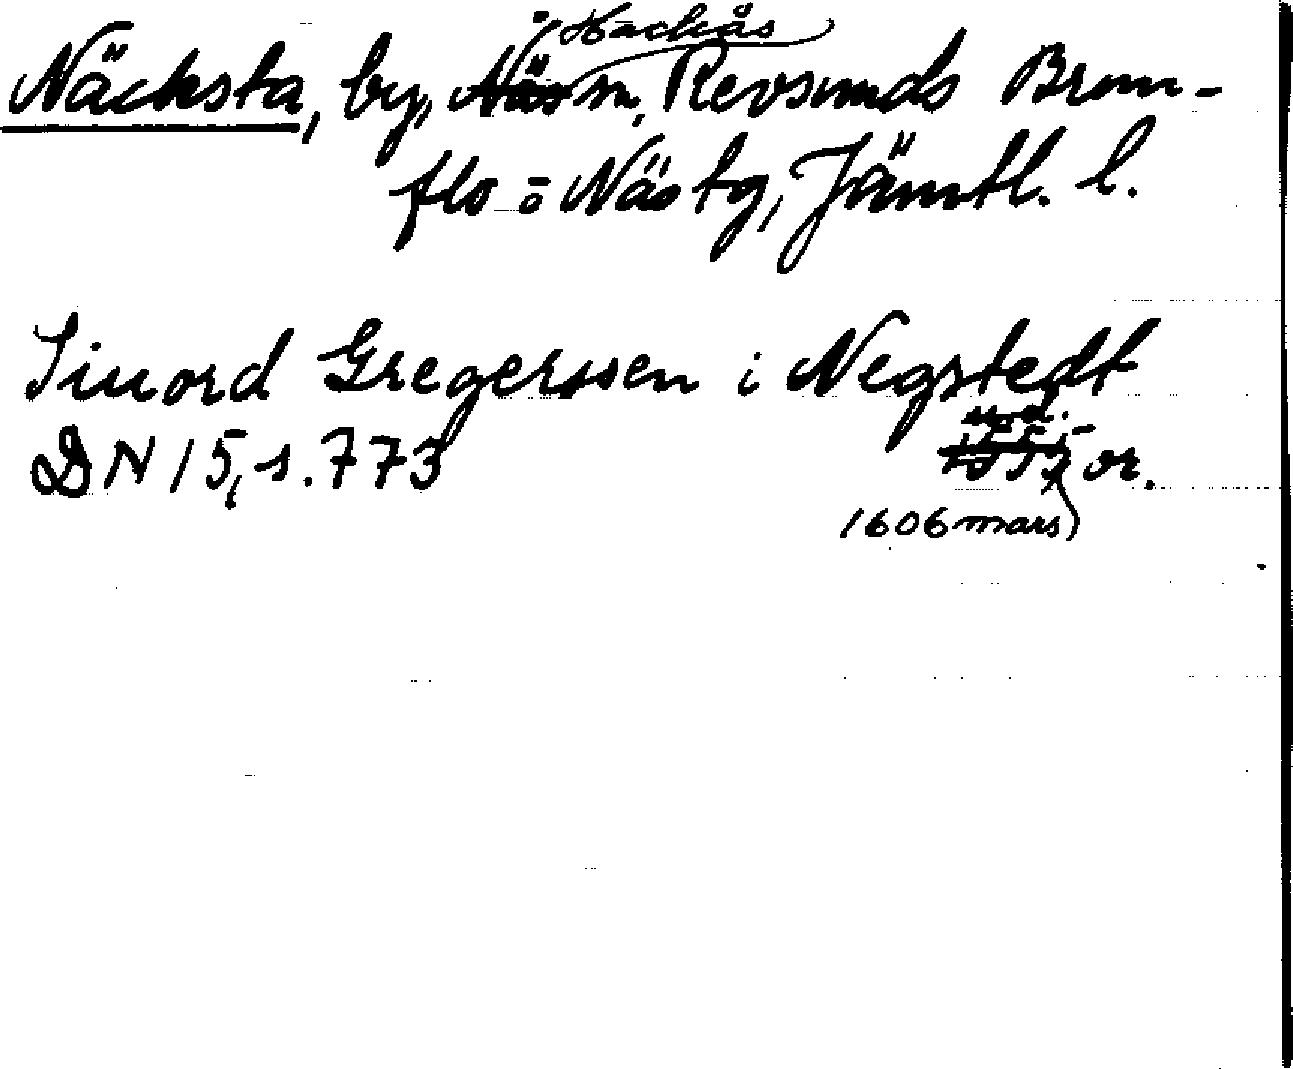 Hackås
Näcksta, by, Näs sn, Revsunds Brun-
flo o Näs tg, Jämtl. l.
Siuord Gregerssen i Negstedt
u.d.
DN 15, s. 773 1557 or.
1606 mars)